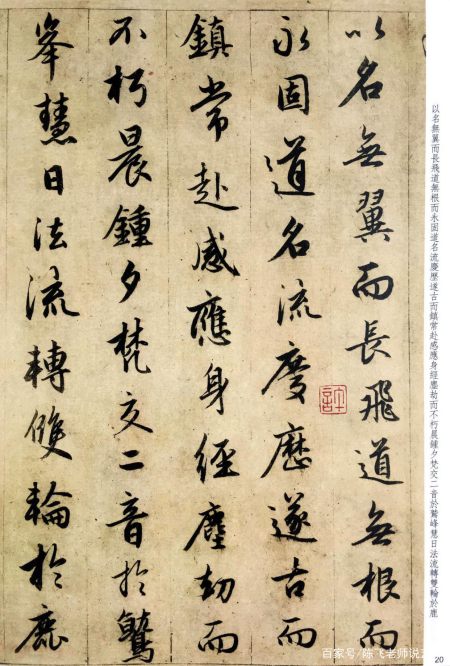 以名無翼而長飛道無根而永固道名流慶歷遂古而鎮常赴感應身經塵劫而不朽晨鍾夕梵交二音於鷲峰慧日法流轉雙輪於鹿
以名無翼而長飛道無根而
永固道名流慶歷遂古而
鎮常赴感應身經塵劫而
不朽晨鍾夕梵交二音於鷲
峯慧日法流轉雙輪於鹿
百家号/陈飞老师说
20